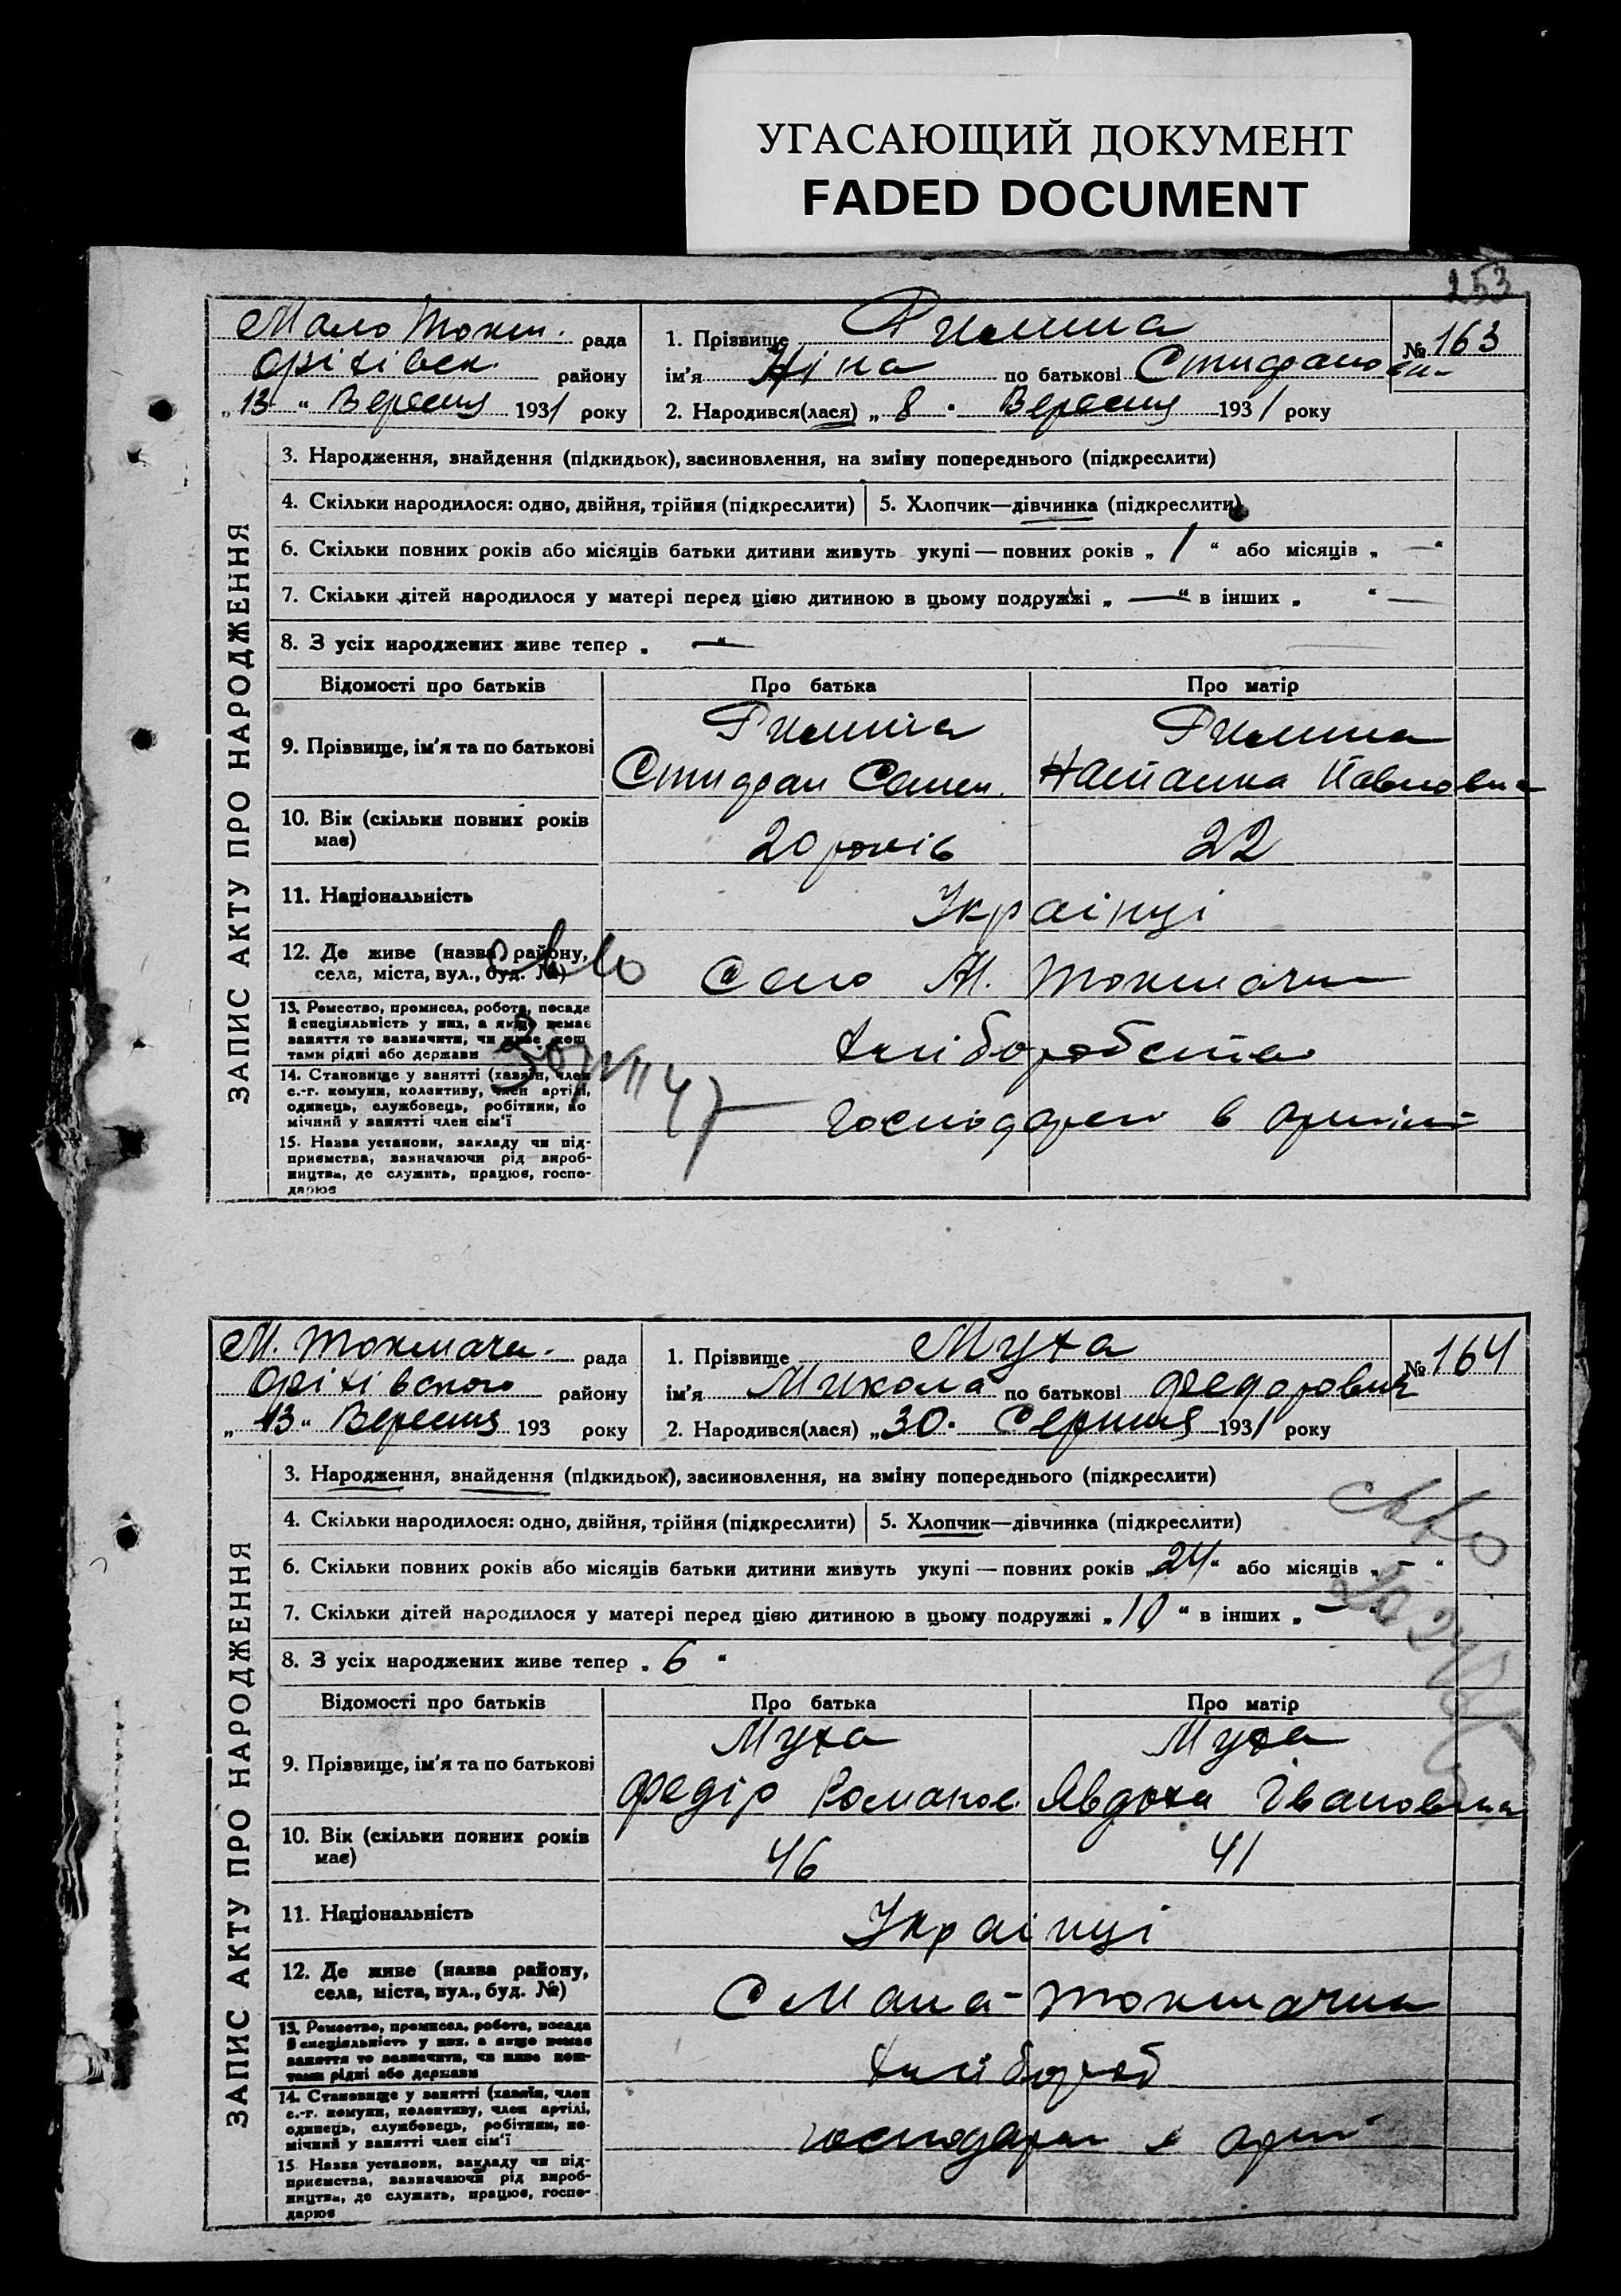 УГАСАЮЩИЙ ДОКУМЕНТ
FADED DOCUMENT
253
ЗАПИС АКТУ ПРО НАРОДЖЕННЯ
Мало Токм. рада
Оріхівськ. району
„13“ Вересня 1931 року
№ 163
1. Прізвище
ім'я Ніна по батькові
2. Народився(лася) „8“ Вересня 1931 року
3. Народження, знайдення (підкидьок), засиновлення, на зміну попереднього (підкреслити)
4. Скільки народилося: одно, двійня, трійня (підкреслити)
5. Хлопчик—дівчинка (підкреслити)
6. Скільки повних років або місяців батьки дитини живуть укупі — повних років „1“ або місяців „—“
7. Скільки дітей народилося у матері перед цією дитиною в цьому подружжі „—“ в інших „ “ —
8. З усіх народжених живе тепер „—“
Відомості про батьків Про батька Про матір
9. Прізвище, ім'я та по батькові
Павловна
10. Вік (скільки повних років має)
20 років 22
11. Національність
Украінці
12. Де живе (назва району, села, міста, вул., буд. №)
Село М. Токмачка
13. Ремество, промисел, робота, посада й спеціяльність у них, а якщо немає заняття то зазначити, чи живе коштами рідні або держави
14. Становище у занятті (хазяїн, член с.-г. комуни, колективу, член артілі, одинець, службовець, робітник, помічний у занятті член сім'ї
15. Назва установи, закладу чи підприємства, зазначаючи рід виробництва, де служить, працює, господарює
ЗАПИС АКТУ ПРО НАРОДЖЕННЯ
М. Токмача. рада
Оріхівського району
„13“ Вересня 193 року
№ 164
1. Прізвище Муха
ім'я Микола по батькові Федорович
2. Народився(лася) „30“ Серпня 1931 року
3. Народження, знайдення (підкидьок), засиновлення, на зміну попереднього (підкреслити)
4. Скільки народилося: одно, двійня, трійня (підкреслити)
5. Хлопчик—дівчинка (підкреслити)
6. Скільки повних років або місяців батьки дитини живуть укупі — повних років „24“ або місяців „—“
7. Скільки дітей народилося у матері перед цією дитиною в цьому подружжі „10“ в інших „—
8. З усіх народжених живе тепер „6“
Відомості про батьків Про батька Про матір
9. Прізвище, ім'я та по батькові
Муха Муха
Федір Романов. Явдоха Івановна
10. Вік (скільки повних років має)
46 41
11. Національність
Украінці
12. Де живе (назва району, села, міста, вул., буд. №)
С Мала-Токмачка
13. Ремество, промисел, робота, посада й спеціяльність у них, а якщо немає заняття то зазначити, чи живе коштами рідні або держави
хлібороб
14. Становище у занятті (хазяїн, член с.-г. комуни, колективу, член артілі, одинець, службовець, робітник, помічний у занятті член сім'ї
15. Назва установи, закладу чи підприємства, зазначаючи рід виробництва, де служить, працює, господарює